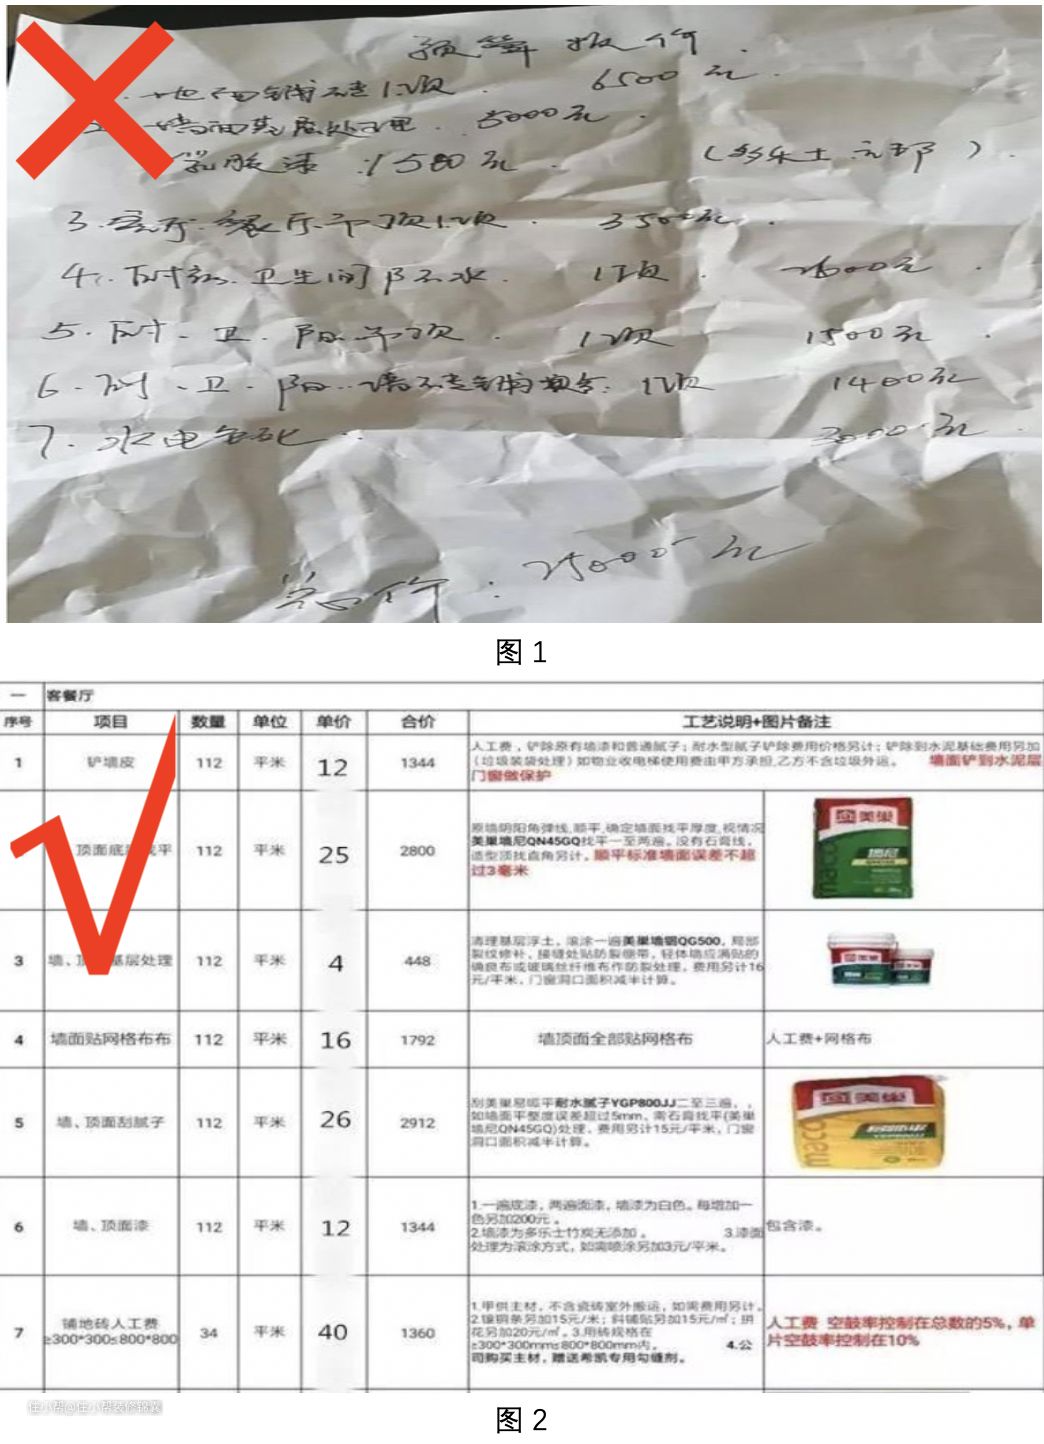 预算报价.
1. 地面铺砖1项. 6500元.
2. 墙面基层处理. 5000元.
乳胶漆:1500元. (多乐士 立邦).
3. 客厅. 餐厅吊顶1项. 3500元.
卫生间防水. 1项. 2600元.
5. 卫. 阳吊顶 1项 1500元.
6. 卫. 阳. 1项 1400元
7. 水电 3000元.
总价: 25000元
图 1
一 客餐厅
序号 项目 数量 单位 单价 合价 工艺说明+图片备注
1 铲墙皮 112 平米 12 1344
人工费,铲除原有墙漆和普通腻子;耐水型腻子铲除费用价格另计;铲除到水泥基础费用另加
(垃圾装袋处理)如物业收电梯使用费由甲方承担,乙方不含垃圾外运。 墙面铲到水泥层
门窗做保护
顶面底 找平 112 平米 25 2800
原墙阴阳角弹线,顺平,确定墙面找平厚度,视情况
美巢墙尼QN45GQ找平一至两遍。没有石膏线,
造型顶找直角另计。顺平标准墙面误差不超
过3毫米
美巢
墙尼
maco
3 墙、顶 基层处理 112 平米 4 448
清理基层浮土,滚涂一遍美巢墙锢QG500,局部
裂纹修补,接缝处贴防裂绷带,轻体墙应满贴的
确良布或玻璃丝纤维布作防裂处理,费用另计16
元/平米,门窗洞口面积减半计算。
美巢
4 墙面贴网格布布 112 平米 16 1792 墙顶面全部贴网格布 人工费+网格布
5 墙、顶面刮腻子 112 平米 26 2912
刮美巢易呱平耐水腻子YGP800JJ二至三遍,,
如墙面平整度误差超过5mm,需石膏找平(美巢
墙尼QN45GQ)处理,费用另计15元/平米,门窗
洞口面积减半计算。
美巢
maco
6 墙、顶面漆 112 平米 12 1344
1.一遍底漆,两遍面漆,墙漆为白色。每增加一
色另加200元。
2.墙漆为多乐士竹炭无添加。 3.漆面
处理为滚涂方式,如需喷涂另加3元/平米。
包含漆。
7 铺地砖人工费 ≥300*300≤800*800 34 平米 40 1360
1.甲供主材,不含瓷砖室外搬运,如需费用另计。
2.镶铜条另加15元/米;斜铺贴另加15元/㎡;拼
花另加20元/㎡。3.用砖规格在
≥300*300mm≤800*800mm内。 4.公
司购买主材,赠送希凯专用勾缝剂。
人工费 空鼓率控制在总数的5%,单
片空鼓率控制在10%
图 2